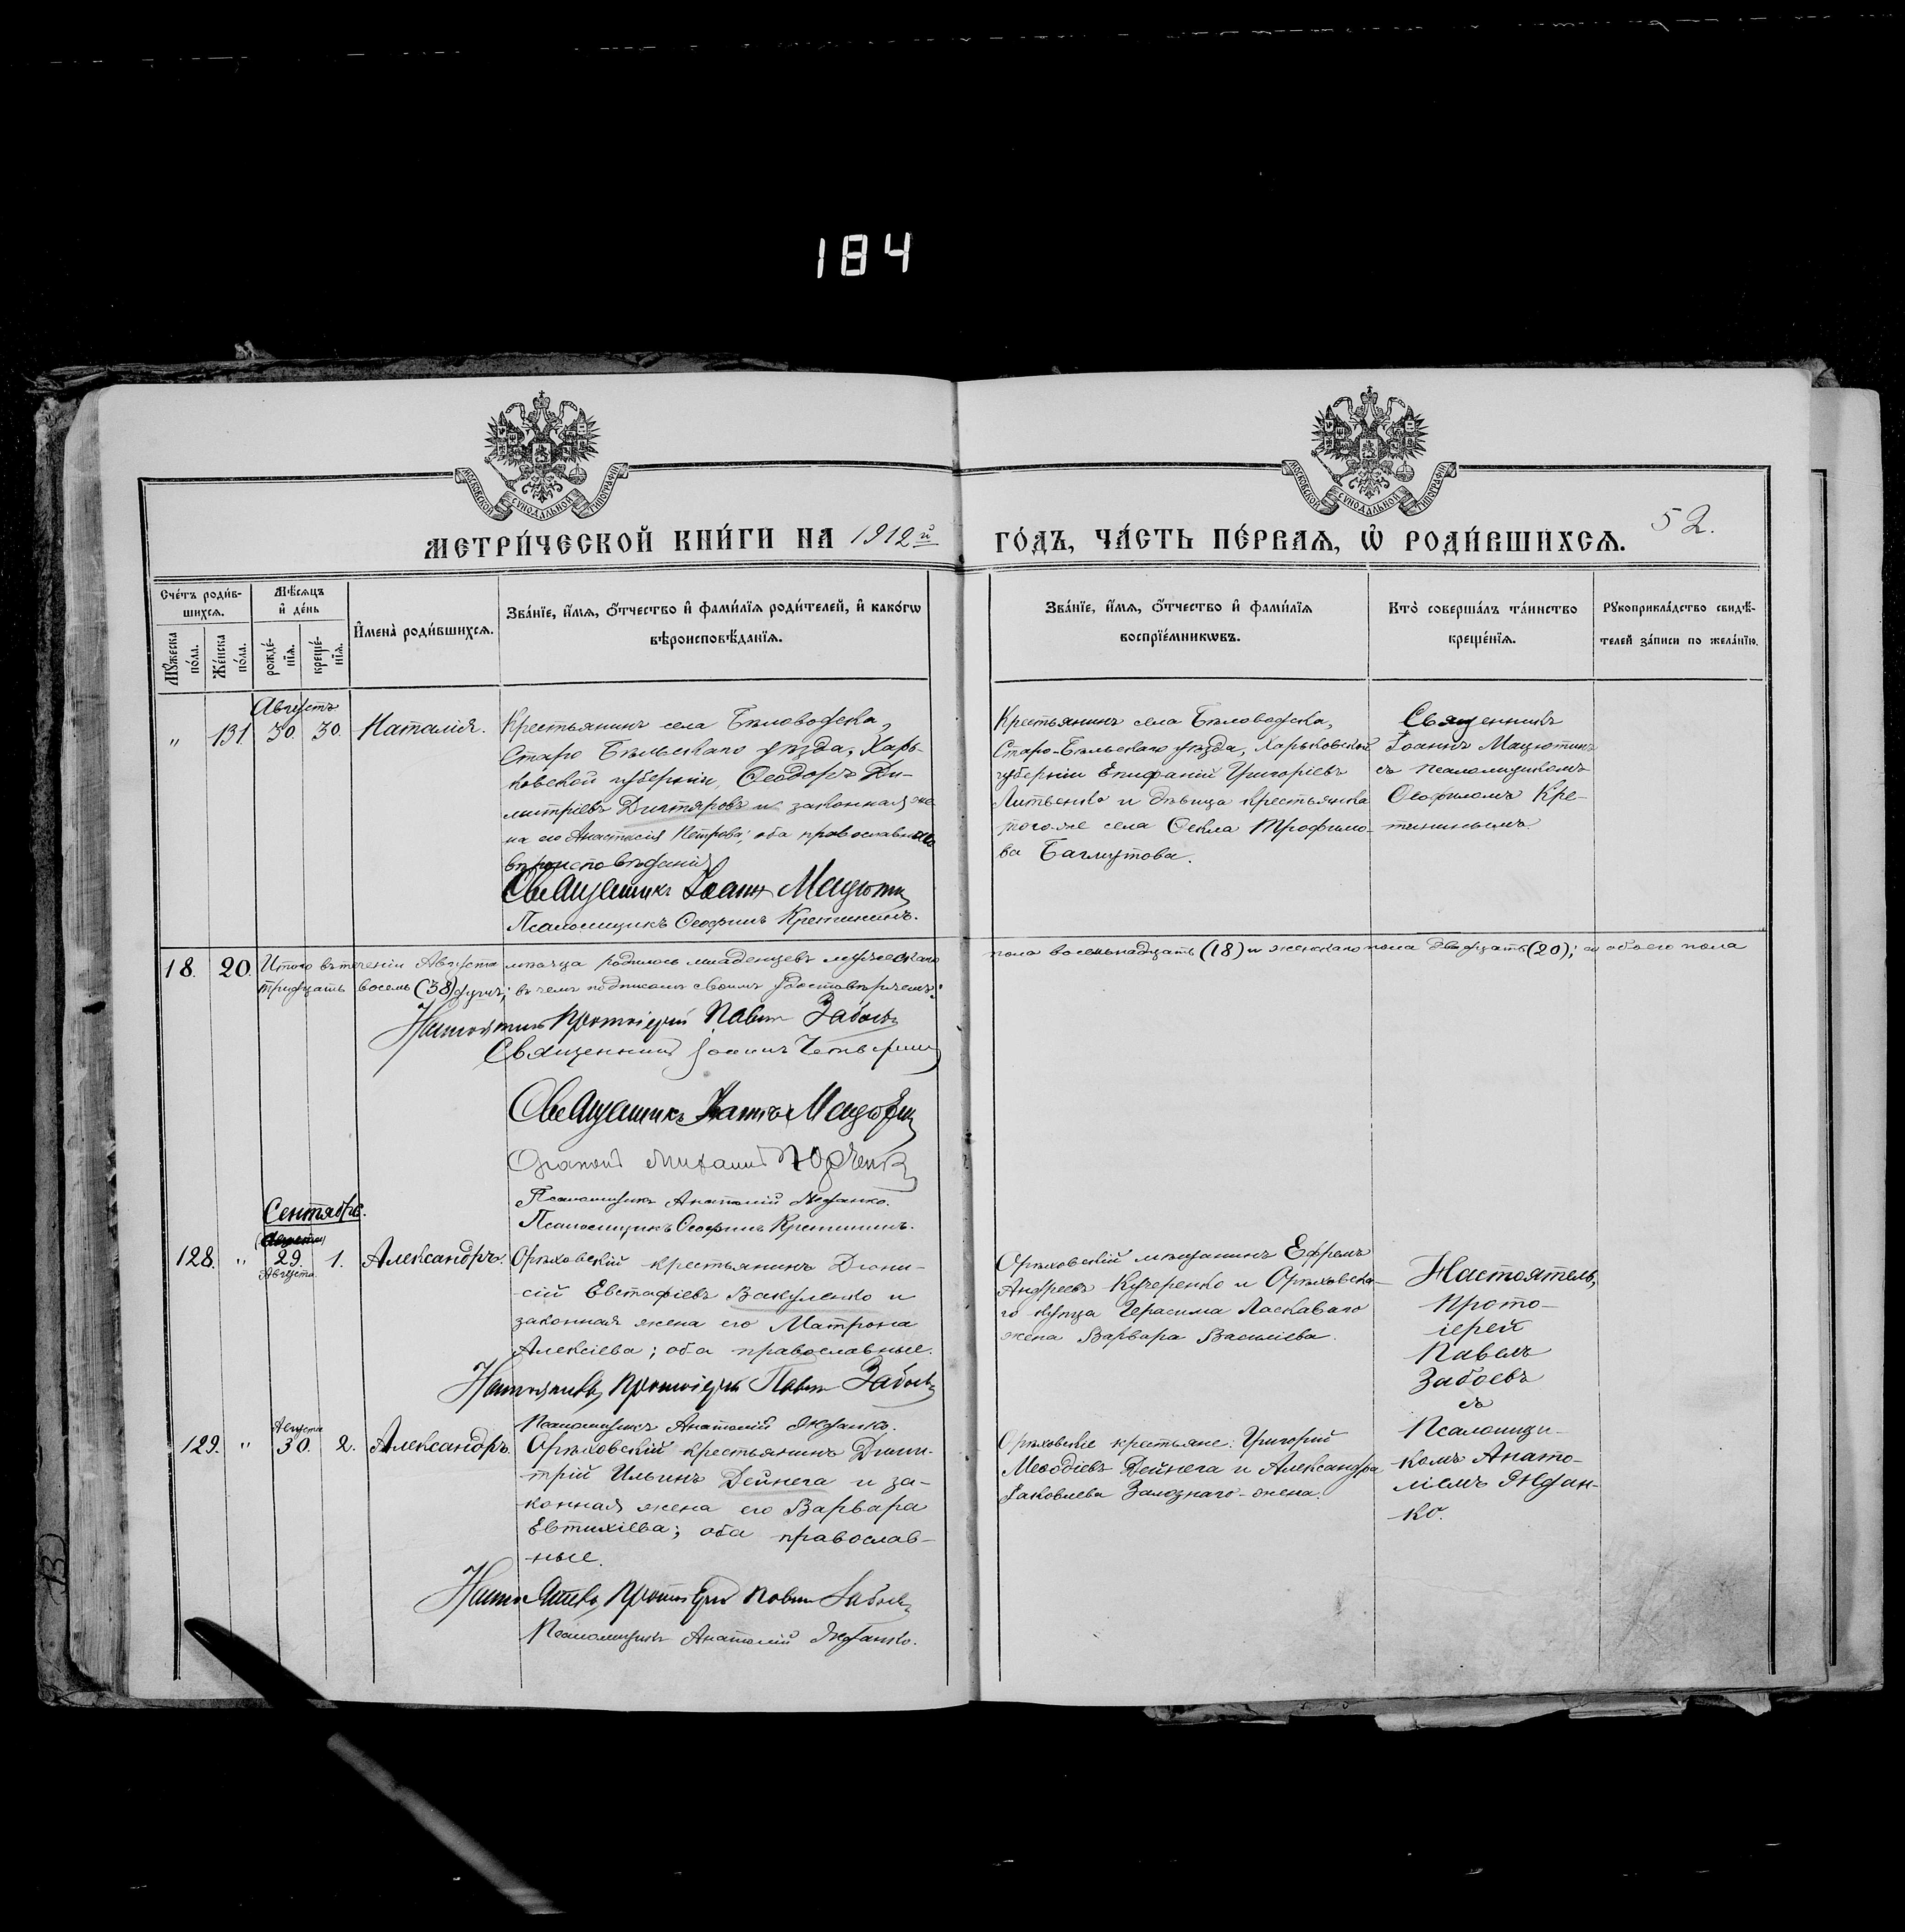 184
МОСКОВСКОЙ СѴНОДАЛЬНОЙ ТИПОГРАФІИ
МОСКОВСКОЙ СѴНОДАЛЬНОЙ ТИПОГРАФІИ
МЕТРИ́ЧЕСКОЙ КНИ́ГИ НА 1912й ГО́ДЪ, ЧА́СТЬ ПЕ́РВАѦ, Ѽ РОДИ́ВШИХСѦ. 52.
Сче́тъ роди́в-
шихсѧ.
Мꙋжеска по́ла.
Же́нска по́ла.
Мѣ́сѧцъ
и҆ де́нь
рожде́-
нїѧ.
креще́-
нїѧ.
И҆мена̀ роди́вшихсѧ.
Зва́нїе, и҆́мѧ, ѻ҆́тчество и҆ фами́лїѧ роди́телей, и҆ како́гѡ
вѣроисповѣ́данїѧ.
Зва́нїе, и҆́мѧ, ѻ҆́тчество и҆ фами́лїѧ
воспрїе́мникѡвъ.
Кто̀ соверша́лъ та́инство
креще́нїѧ.
Рꙋкоприкла́дство свидѣ́-
телей за́писи по жела́нїю.
Августъ
" 131 30. 30. Наталія.
Крестьянинъ села Бѣловодска,
Старо Бѣльскаго уѣзда, Харь-
ковской губерніи, Ѳеодоръ Ди-
митріевъ Дихтяровъ и законная же-
на его Анастасія Петрова; оба православнаго
вѣроисповѣданія
Священникъ Іоаннъ Мацютин
Псаломщикъ Ѳеофилъ Кретининъ.
Крестьянинъ села Бѣловодска,
Старо-Бѣльскаго уѣзда, Харьковской
губерніи Епифаній Григоріевъ
Литвенко и дѣвица крестьянка
того-же села Ѳекла Трофимо-
ва Баглутова.
Священникъ
Іоаннъ Мацютинъ
съ псаломщикомъ
Ѳеофиломъ Кре-
тининымъ.
18. 20. Итого въ теченіи Августа мѣсяца родилось младенцевъ мужескаго пола восемьнадцать (18) и женскаго пола двадцать (20); а обоего пола
тридцать восемь (38) душъ; въ чемъ подписомъ своимъ удостовѣряемъ:
Настоятель Протоіерей Павелъ Забоевъ
Священникъ Іоаннъ
Священникъ Іоаннъ Мацютин
Діаконъ Михаилъ Юрченко
Псаломщикъ Анатолій Жданко.
Псаломщикъ Ѳеофилъ Кретининъ.
Сентябрь.
128. " 29. Августа 1. Александръ.
Орѣховскій крестьянинъ Діони-
сій Евстафіевъ Вакуленко и
законная жена его Матрона
Алексіева; оба православные.
Настоятель, Протоіерей Павелъ Забоевъ
Псаломщикъ Анатолій Жданко.
Орѣховскій мѣщанинъ Ефремъ
Андреевъ Кучеренко и Орѣховска-
го купца Герасима Ласкаваго
жена Варвара Василіева.
Настоятель,
Прото-
іерей
Павелъ
Забоевъ
съ
Псаломщи-
комъ Анато-
ліемъ Ждан-
ко.
129. " Августа 30. 2. Александръ.
Орѣховскій крестьянинъ Дими-
трій Ильинъ Дейнега и за-
конная жена его Варвара
Евтихіева; оба православ-
ные.
Настоятель, Протоіерей Павелъ Забоевъ
Псаломщикъ Анатолій Жданко.
Орѣховскіе крестьяне: Григорій
Меѳодіевъ Дейнега и Александра
Іаковлева Залознаго-жена.